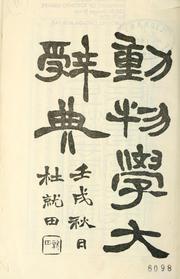 動物學大
辭典
壬戌秋日
杜就田
8098